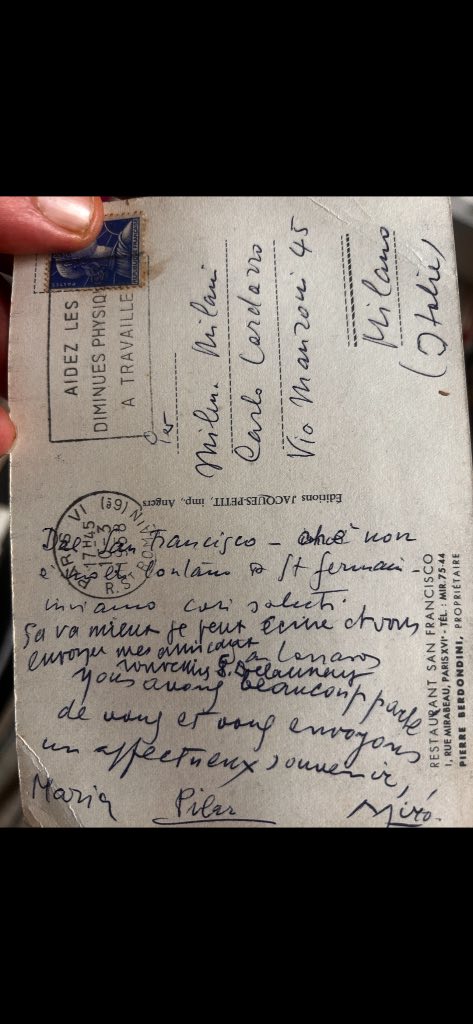 AIDEZ LES
DIMINUES PHYSIQ
A TRAVAILLE
Milena Milani
Carlo Cardazzo
Via Manzoni 45
Milano
(Italie)
Éditions JACQUES-PETIT, imp., Angers
PARIS VI
17H45
10-3
1958
Dal San Francisco – che è non
è molto lontano da St Germain –
inviamo cari saluti
ça va mieux je peux écrire et vous
envoyer mes amicaux
souvenirs S. Delaunay
nous avons beaucoup parlé
de vous et vous envoyons
un affectueux souvenir,
Maria Pilar Miró.
RESTAURANT SAN FRANCISCO
1, RUE MIRABEAU, PARIS XVIe - TÉL : MIR. 75-44
PIERRE BERDONDINI, PROPRIÉTAIRE